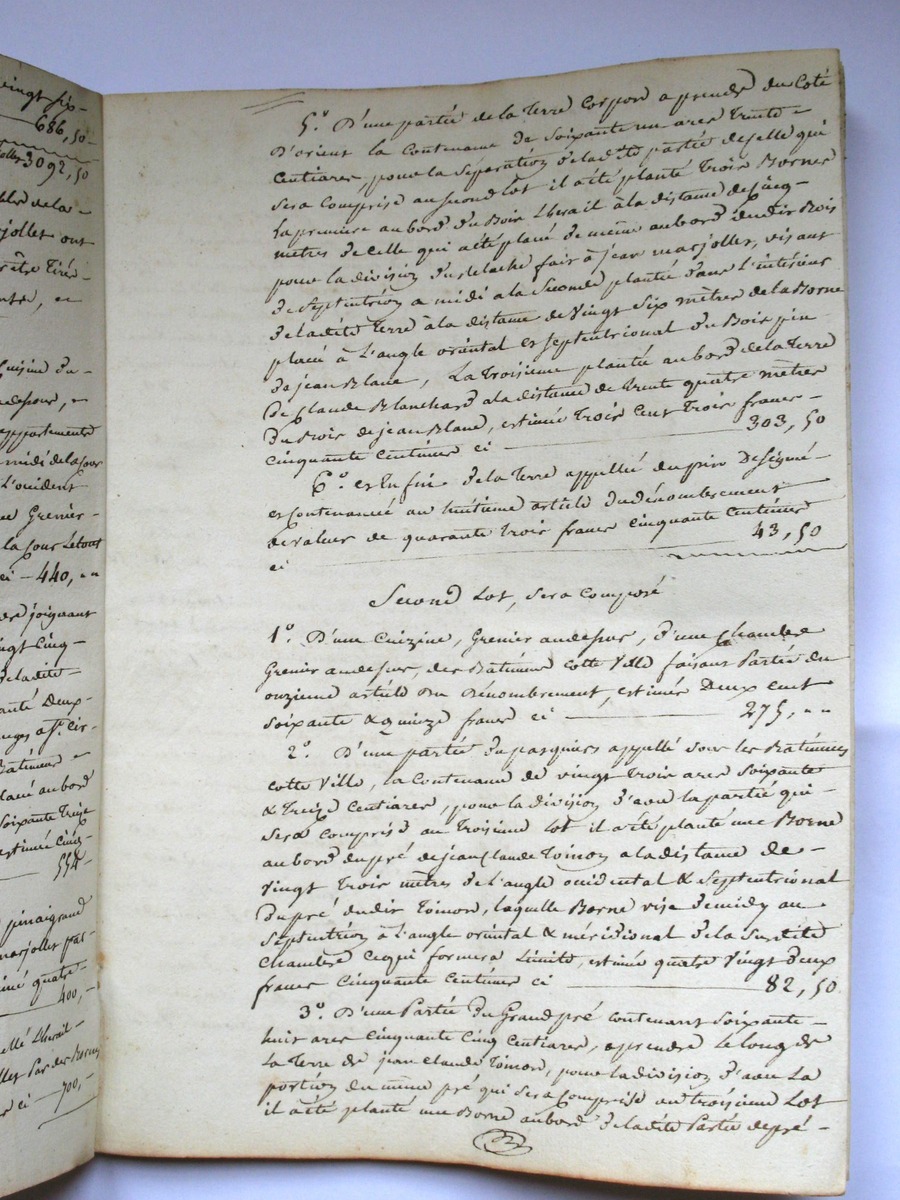 vingt six-
686, 50-
3092, 50
de la-
jollet ont
être tiré-
, et
Cuisine du-
appartements
midi de la Cour
L'occident
Grenier-
la Cour Le tout
ci - 440, " "
joignant
vingt Cinq-
de la dite-
planté Deux-
Batiment
placé au bord
Soixante Treize
estimée Cinq-
554-
pinaigrand
marjollet par-
quatre-
400,-
appellé Lherait-
Par des Bornes
ci - 700,-
5.° D'une partie de la Terre Corpon a prendre du Coté
D'orient la Contenance de Soixante un ares Trente-
Centiares, pour la Séparation de la dite partie de celle qui
Sera Comprise au second Lot il a été planté Trois Bornes
La premiere au bord du Bois Lherait à la distance de Cinq-
mètres de Celle qui a été placé de même au bord dudit Bois
pour la division du relaché fait à jean marjollet, visant
de Septentrion a midi a la Seconde plantée dans L'intérieur
de la dite Terre à la distance de Vingt Six mètres de la Borne
placé à L'angle oriental et Septentrional du Bois pin
de jean Blanc, La Troisieme plantée au bord de la Terre
de Claude Blanchard a la distance de Trente quatre mètres
du Bois de jean Blanc, estimée Trois Cent Trois francs-
cinquante Centimes ci 303, 50
6.° et Enfin de la Terre appellée du pin Designé-
et Contenancé au huitieme article du dénombrement
de valeur de quarante Trois francs cinquante Centimes
ci 43, 50
Second Lot, Sera Composé
1.° D'une Cuizine, Grenier au dessus, d'une Chambre
Grenier au dessus, des Batiments Cotte Ville faisant Partie du
onzieme article du Dénombrement, estimés Deux Cent
Soixante & quinze francs ci 275, " "
2.° D'une partie du pasquier appellé sous les Batiments
Cotte Ville, la Contenance de vingt trois ares Soixante
& Treize Centiares, pour la division d'avec la partie qui-
Sera Comprise au Troisieme Lot il a été planté une Borne
au bord du pré de jean Claude Toinon a la distance de-
Vingt Trois mètres de L'angle occidental & Septentrional
du pré dudit Toinon, laquelle Borne vise de midy au
Septentrion à L'angle oriental & méridional de la Susdite
Chambre Ce qui formera Limite, estimée quatre Vingt Deux
francs Cinquante Centimes ci 82, 50
3.° D'une Partie du Grand pré Contenant Soixante-
huit ares Cinquante Cinq Centiares, a prendre Le long de
La Terre de jean Claude Toinon, pour la division d'avec La
portion du même pré qui Sera Comprise au troisieme Lot
il a été planté une Borne au bord de la dite Partie de pré-